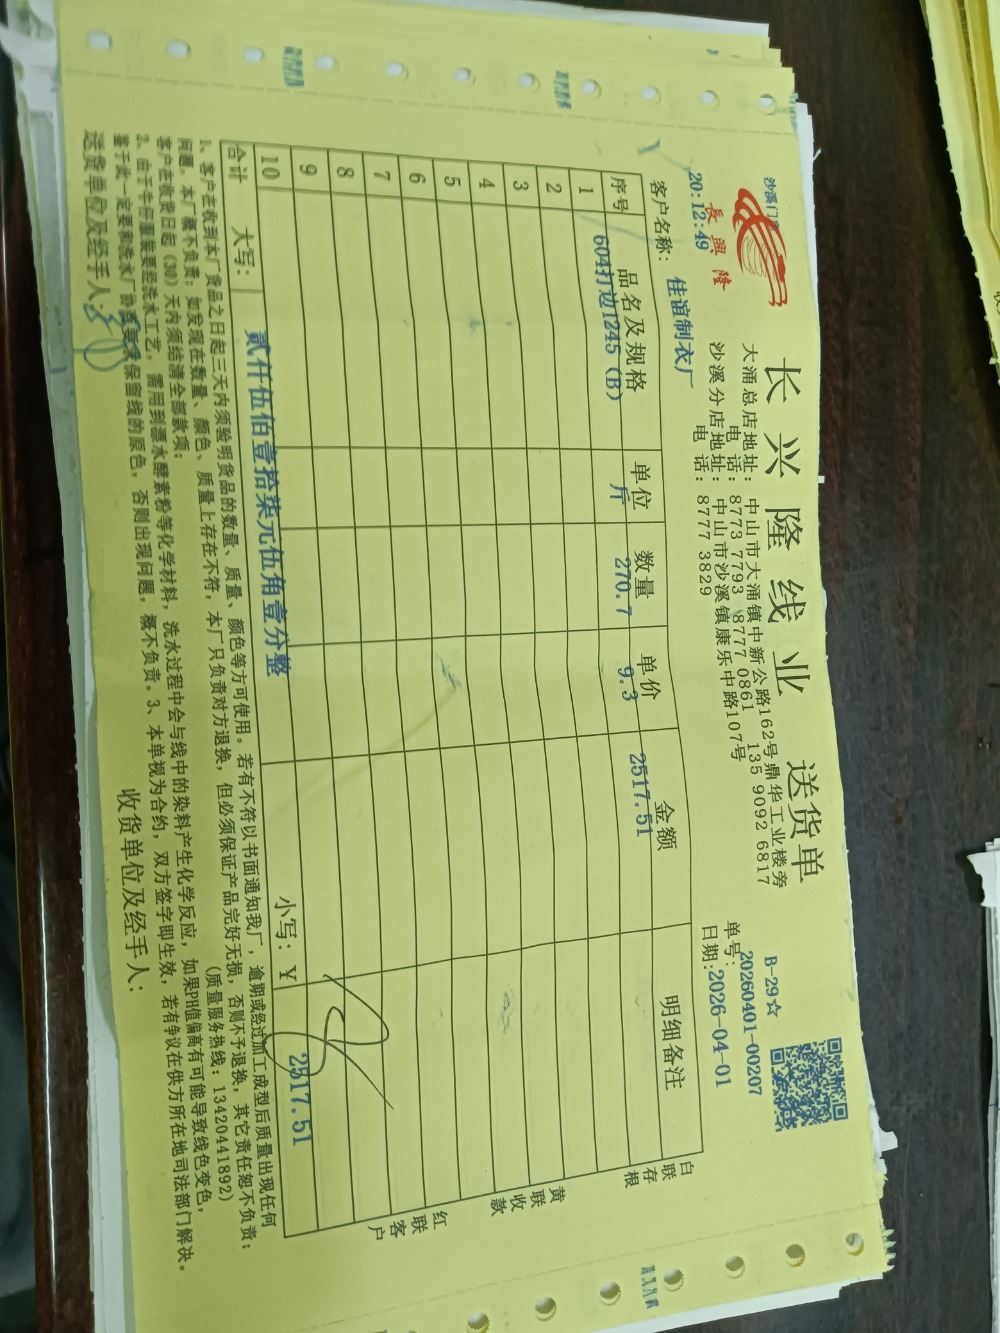 沙溪门市
長興隆
20:12:49
长兴隆线业 送货单
大涌总店地址：中山市大涌镇中新公路162号鼎华工业楼旁
电 话：8773 7793 8777 0861 135 9092 6817
沙溪分店地址：中山市沙溪镇康乐中路107号
电 话：8777 3829
B-29☆
单号：20260401-00207
日期：2026-04-01
客户名称：佳谊制衣厂
序号 品名及规格 单位 数量 单价 金额 明细备注
1 604打边1245 (B) 斤 270.7 9.3 2517.51
2
3
4
5
6
7
8
9
10
合计 大写：贰仟伍佰壹拾柒元伍角壹分整 小写：Y 2517.51
白联存根
黄联收款
红联客户
1、客户在收到本厂货品之日起三天内须验明货品的数量、质量、颜色等方可使用。若有不符以书面通知我厂，逾期或经过加工成型后质量出现任何
问题，本厂概不负责；如发现在数量、颜色、质量上存在不符，本厂只负责对方退换，但必须保证产品完好无损，否则不予退换，其它责任恕不负责；
客户在收货日起（30）天内须给清全部款项； (质量服务热线：13420441892)
2、由于牛仔服装要经洗水工艺，需用到漂水酵素粉等化学材料，洗水过程中会与线中的染料产生化学反应，如果PH值偏高有可能导致线色变色，
鉴于此一定要求洗水厂协商要求保留线的原色，否则出现问题，概不负责。3、本单视为合约，双方签字即生效，若有争议在供方所在地司法部门解决。
送货单位及经手人： 收货单位及经手人：